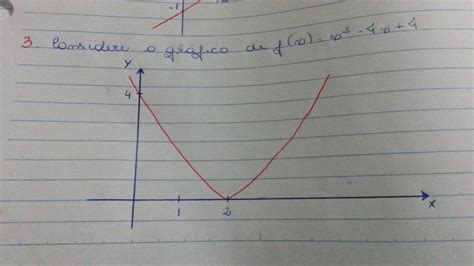 -1
3. Considere o gráfico de f(x) = x² - 4x + 4
y
4
1 2
x